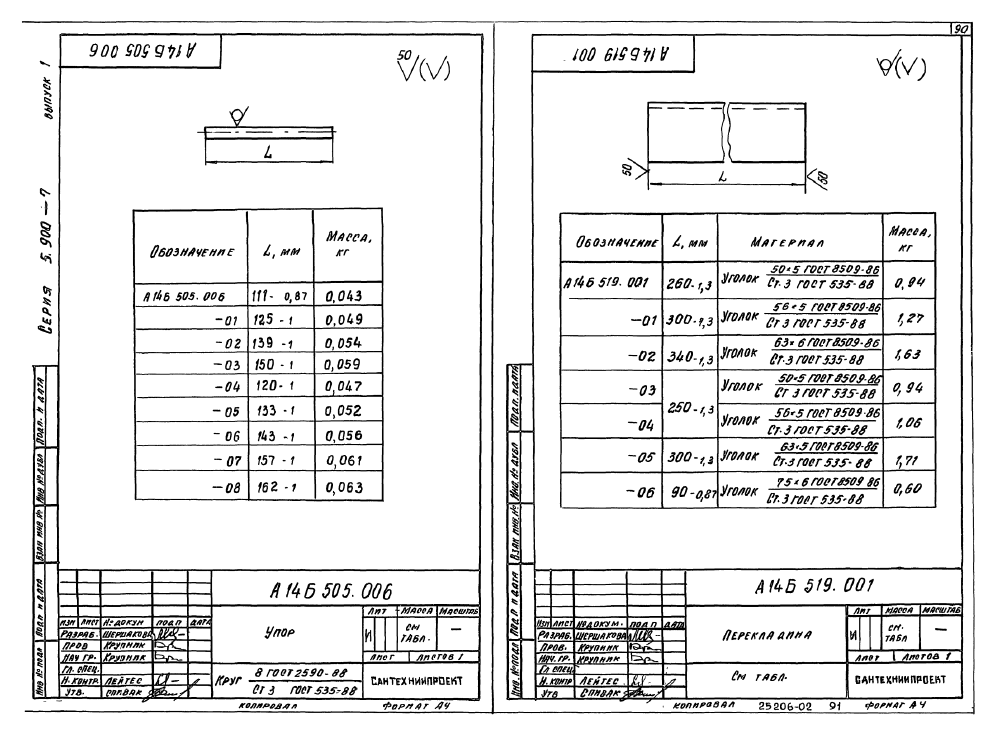 90
Серия 5.900-7 выпуск 1
А14Б 505 006
50
(√)
L
Обозначение L, мм Масса, кг
А14Б 505.006 111- 0,87 0,043
-01 125 -1 0,049
-02 139 -1 0,054
-03 150 -1 0,059
-04 120-1 0,047
-05 133 -1 0,052
-06 143 -1 0,056
-07 157 -1 0,061
-08 162 -1 0,063
Подп. и дата
Инв № дубл
Взам инв №
Подп и дата
Инв № подл
А14Б 505.006
Изм Лист № докум подп дата
Разраб. Шершакова
Пров Крупник
Нач гр. Крупник
Гл. спец.
Н. контр Лейтес
Утв. Спивак
Упор
Лит Масса Масштаб
И см табл. —
Лист Листов 1
Круг 8 ГОСТ 2590-88
Ст 3 ГОСТ 535-88
Сантехниипроект
Копировал Формат А4
А14Б 519 001
(√)
50
50
L
Обозначение L, мм Материал Масса, кг
А14Б 519.001 260-1,3 Уголок 50×5 ГОСТ 8509-86 0,94
Ст.3 ГОСТ 535-88
-01 300-1,3 Уголок 56×5 ГОСТ 8509-86 1,27
Ст 3 ГОСТ 535-88
-02 340-1,3 Уголок 63×6 ГОСТ 8509-86 1,63
Ст.3 ГОСТ 535-88
-03 250-1,3 Уголок 50×5 ГОСТ 8509-86 0,94
Ст 3 ГОСТ 535-88
-04 Уголок 56×5 ГОСТ 8509-86 1,06
Ст.3 ГОСТ 535-88
-05 300-1,3 Уголок 63×5 ГОСТ 8509-86 1,71
Ст.3 ГОСТ 535-88
-06 90-0,87 Уголок 75×6 ГОСТ 8509 86 0,60
Ст.3 ГОСТ 535-88
Подп. и дата
Инв. № дубл
Взам инв. №
Подп и дата
Инв. № подл
А14Б 519.001
Изм Лист № докум. подп дата
Разраб. Шершакова
Пров. Крупник
Нач. гр. Крупник
Гл спец
Н. контр Лейтес
Утв Спивак
Перекладина
Лит Масса Масштаб
И см. табл —
Лист Листов 1
См табл.
Сантехниипроект
Копировал 25206-02 91 Формат А4